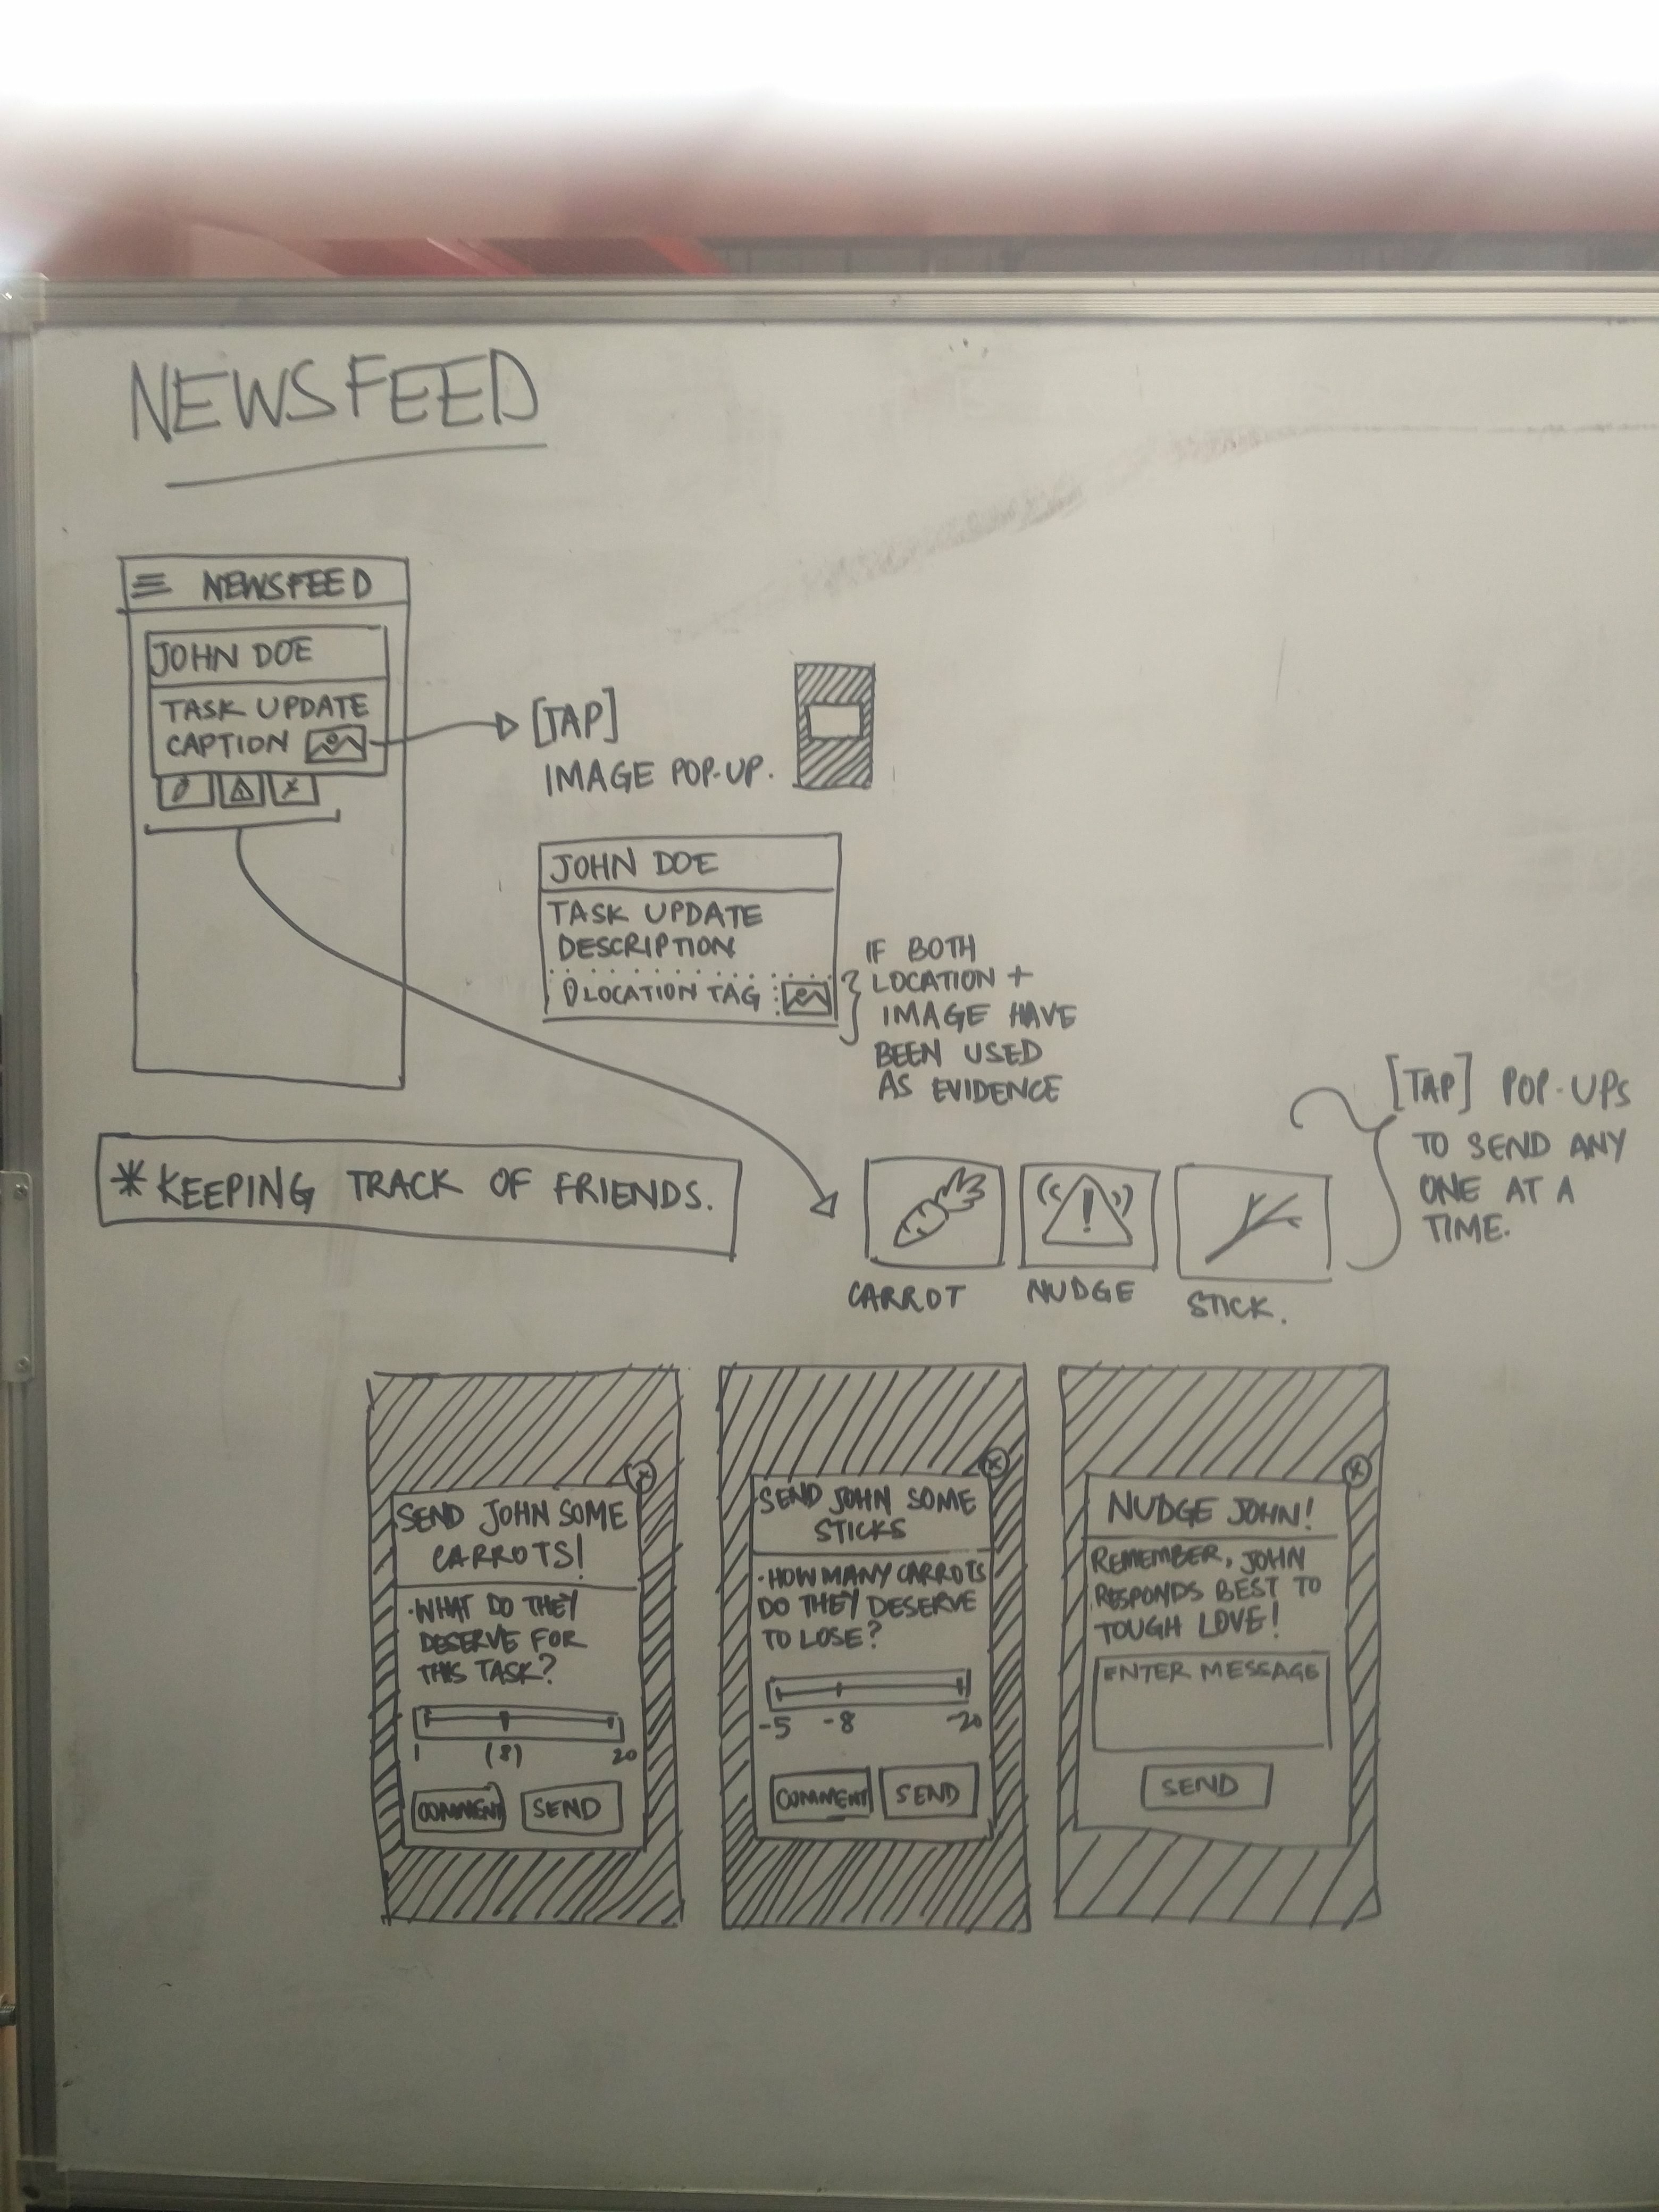 NEWSFEED
NEWSFEED
JOHN DOE
TASK UPDATE
CAPTION
[TAP]
IMAGE POP-UP.
JOHN DOE
TASK UPDATE
DESCRIPTION
LOCATION TAG
IF BOTH
LOCATION +
IMAGE HAVE
BEEN USED
AS EVIDENCE
* KEEPING TRACK OF FRIENDS.
[TAP] POP-UPS
TO SEND ANY
ONE AT A
TIME.
CARROT
NUDGE
STICK.
SEND JOHN SOME
CARROTS!
·WHAT DO THEY
DESERVE FOR
THIS TASK?
1 (8) 20
COMMENT SEND
SEND JOHN SOME
STICKS
·HOW MANY CARROTS
DO THEY DESERVE
TO LOSE?
-5 -8 -20
COMMENT SEND
NUDGE JOHN!
REMEMBER, JOHN
RESPONDS BEST TO
TOUGH LOVE!
ENTER MESSAGE
SEND